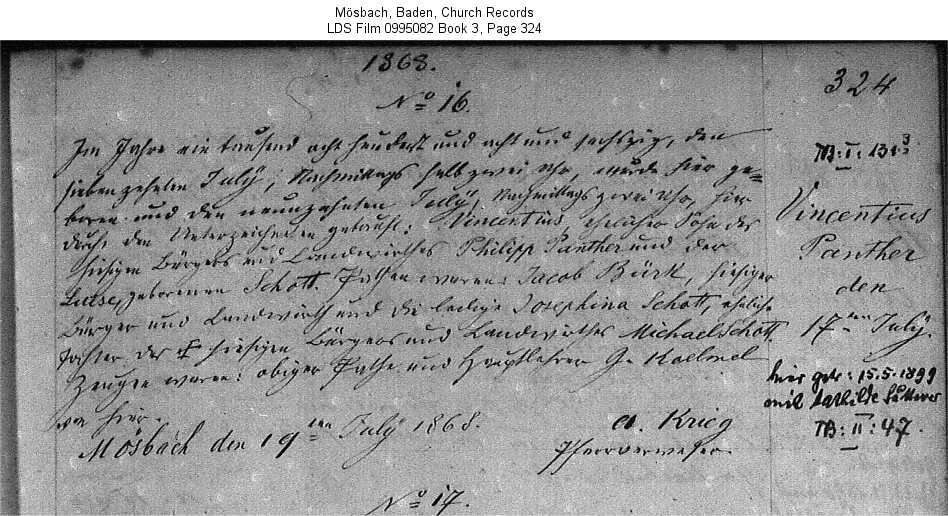 Mösbach, Baden, Church Records
LDS Film 0995082 Book 3, Page 324
1868.
324
No 16.
Im Jahre ein tausend acht hundert und acht und sechszig, den
siebenzehnten July, Nachmittags halb zwei Uhr, wurde hier ge-
boren und den neunzehnten July, Nachmittags zwei Uhr, hier
durch den Unterzeichneten getauft: Vincentius ehelicher Sohn des
hiesigen Bürgers und Landwirthes Philipp Panther und der
Luise, geborenen Schott. Pathen waren: Jacob Bürk, hiesiger
Bürger und Landwirth und die ledige Josephina Schott, eheliche
Tochter des † hiesigen Bürgers und Landwirthes Michael Schott.
Zeugen waren: obiger Pathe und Hauptlehrer G. Koelmel
von hier.
Mösbach den 19ten July 1868.
A. Krieg
Pfarrverweser.
TB: I: 131.3
Vincentius
Panther
den
17ten July.
hier getr: 15.5.1899
mit Mathilde
TB: II: 47.
No 17.